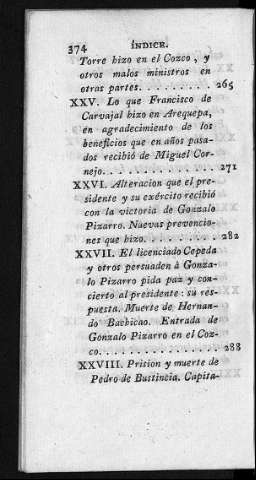 374 ÍNDICE.
Torre hizo en el Cozco, y
otros malos ministros en
otras partes. . . . . . . . . . 265
XXV. Lo que Francisco de
Carvajal hizo en Arequepa,
en agradecimiento de los
beneficios que en años pasa-
dos recibió de Miguel Cor-
nejo. . . . . . . . . . . . . . . 271
XXVI. Alteracion que el pre-
sidente y su exército recibió
con la victoria de Gonzalo
Pizarro. Nuevas prevencio-
nes que hizo. . . . . . . . . . 282
XXVII. El licenciado Cepeda
y otros persuaden à Gonza-
lo Pizarro pida paz y con-
cierto al presidente: su res-
puesta. Muerte de Hernan-
do Bachicao. Entrada de
Gonzalo Pizarro en el Coz-
co. . . . . . . . . . . . . . . . 288
XXVIII. Prision y muerte de
Pedro de Bustincia. Capita-